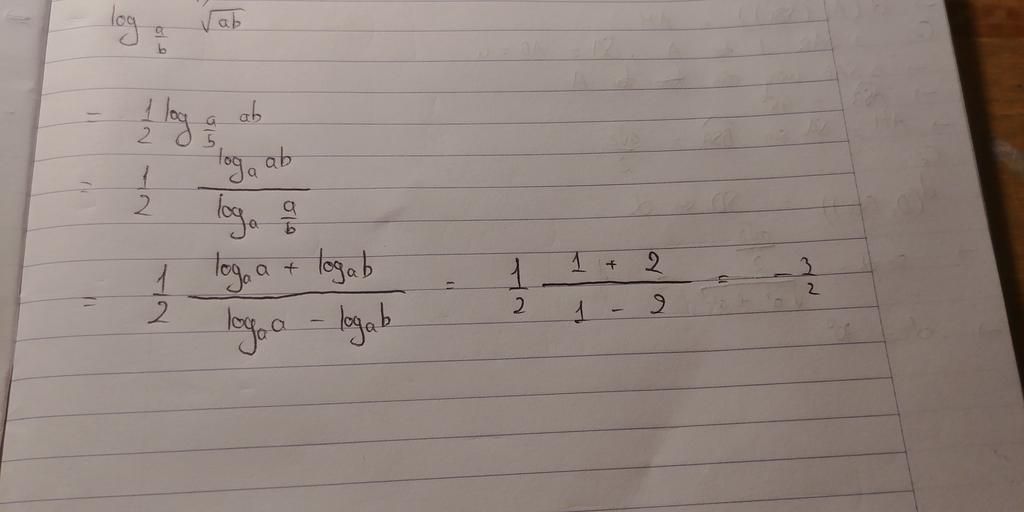 log_{a/b} √ab
= 1/2 log_{a/b} ab
= 1/2 (log_a ab)/(log_a a/b)
= 1/2 (log_a a + log_a b)/(log_a a - log_a b) = 1/2 (1 + 2)/(1 - 2) = -3/2